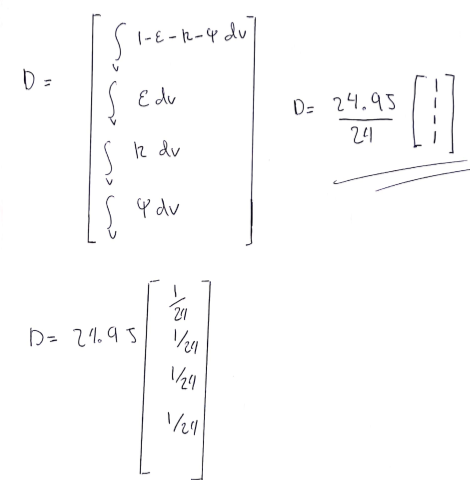 D = [ ∫_v 1-ε-k-φ dv
∫_v ε dv
∫_v k dv
∫_v φ dv ]
D = 24.95/24 [ 1
1
1
1 ]
D = 24.95 [ 1/24
1/24
1/24
1/24 ]